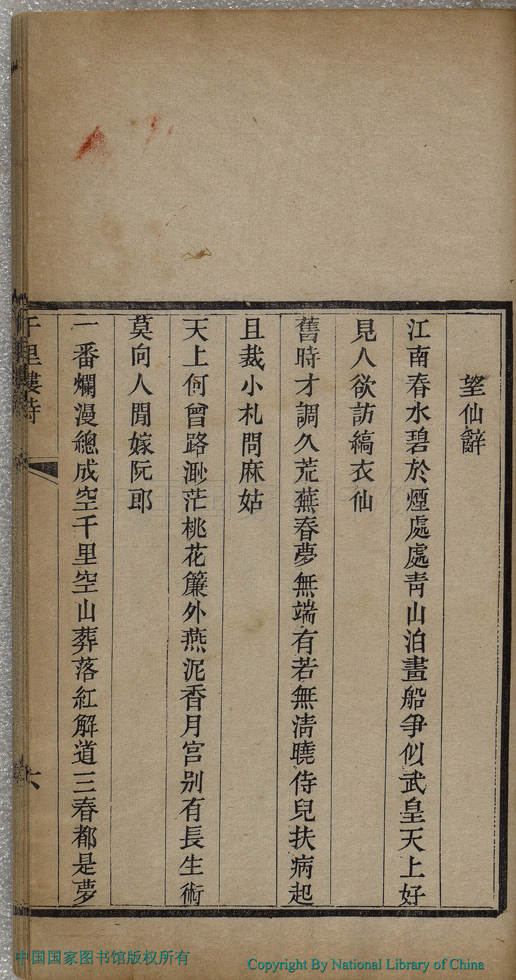 望仙辭
江南春水碧於煙處處青山泊畫船爭似武皇天上好
見人欲訪縞衣仙
舊時才調久荒蕪春夢無端有若無淸曉侍兒扶病起
且裁小札問麻姑
天上何曾路渺茫桃花簾外燕泥香月宮別有長生術
莫向人閒嫁阮郎
一番爛漫總成空千里空山葬落紅解道三春都是夢
千里樓詩
六
中国国家图书馆版权所有
Copyright By National Library of China